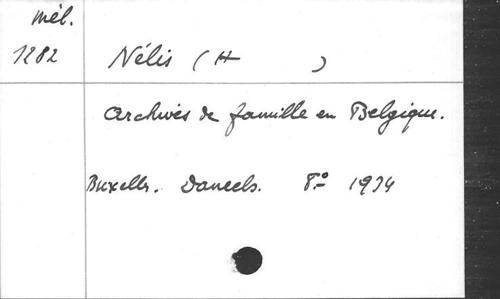 Mél.
1282
Nélis (H )
Archives de famille en Belgique.
Bruxelles. Daneels. 8.° 1934